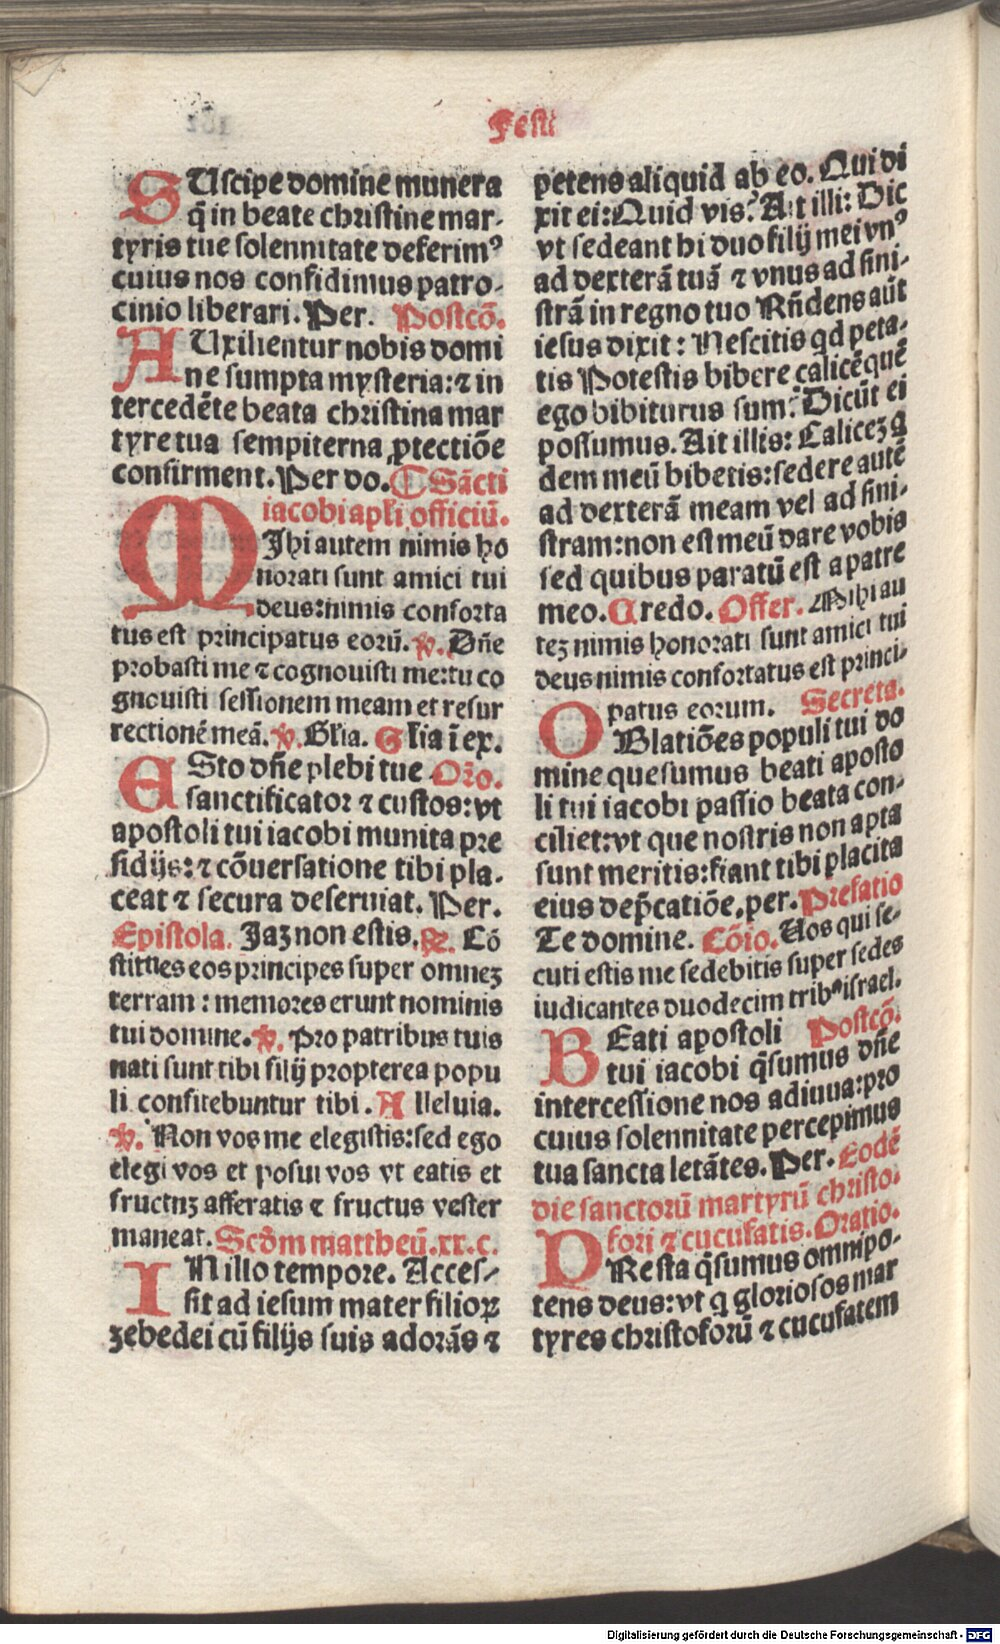 Festi
SUscipe domine munera
q̃ in beate christine mar-
tyris tue solennitate deferimꝰ
cuius nos confidimus patro-
cinio liberari. Per. Postcõ.
AUxilientur nobis domi
ne sumpta mysteria: ⁊ in
tercedẽte beata christina mar
tyre tua sempiterna ꝓtectiõe
confirment. Per do. ¶ Sãcti
iacobi apl̃i officiũ.
MIhi autem nimis ho
norati sunt amici tui
deus: nimis conforta
tus est principatus eorũ. ℣. Dñe
probasti me ⁊ cognouisti me: tu co
gnouisti sessionem meam et resur
rectionẽ meã. ℣. Gl̃ia. Gl̃ia ĩ ex.
ESto dñe plebi tue Oro̅.
sanctificator ⁊ custos: vt
apostoli tui iacobi munita pre
sidijs: ⁊ cõuersatione tibi pla-
ceat ⁊ secura deseruiat. Per.
Epistola. Jaꝫ non estis. ℟. Cõ
stitues eos principes super omneꝫ
terram: memores erunt nominis
tui domine. ℣. Pro patribus tuis
nati sunt tibi filij propterea popu
li confitebuntur tibi. Alleluia.
℣. Non vos me elegistis: sed ego
elegi vos et posui vos vt eatis et
fructuꝫ afferatis ⁊ fructus vester
maneat. Scd̃m mattheũ. xx. c.
IN illo tempore. Acces-
sit ad iesum mater filioꝝ
zebedei cũ filijs suis adorãs ⁊
petens aliquid ab eo. Qui di
xit ei: Quid vis? Ait illi: Dic
vt sedeant hi duo filij mei vnꝰ
ad dexterã tuã ⁊ vnus ad sini-
strã in regno tuo Rñdens aũt
iesus dixit: Nescitis qd peta-
tis Potestis bibere calicẽ quẽ
ego bibiturus sum? Dicũt ei
possumus. Ait illis: Caliceꝫ q
dem meũ bibetis: sedere autẽ
ad dexterã meam vel ad sini-
stram: non est meũ dare vobis
sed quibus paratũ est a patre
meo. Credo. Offer. Mihi au
teꝫ nimis honorati sunt amici tui
deus nimis confortatus est princi-
patus eorum. Secreta.
OBlatiões populi tui do
mine quesumus beati aposto
li tui iacobi passio beata con-
ciliet: vt que nostris non apta
sunt meritis: fiant tibi placita
eius dep̃catiõe. per. Prefatio
Te domine. Cõio. Uos qui se-
cuti estis me sedebitis super sedes
iudicantes duodecim tribꝰ israel.
BEati apostoli Postcõ.
tui iacobi q̃sumus dñe
intercessione nos adiuua: pro
cuius solennitate percepimus
tua sancta letãtes. Per. Eodẽ
die sanctorũ martyrũ christo-
fori ⁊ cucufatis. Oratio.
PResta q̃sumus omnipo-
tens deus: vt q̃ gloriosos mar
tyres christoforũ ⁊ cucufatem
Digitalisierung gefördert durch die Deutsche Forschungsgemeinschaft - DFG